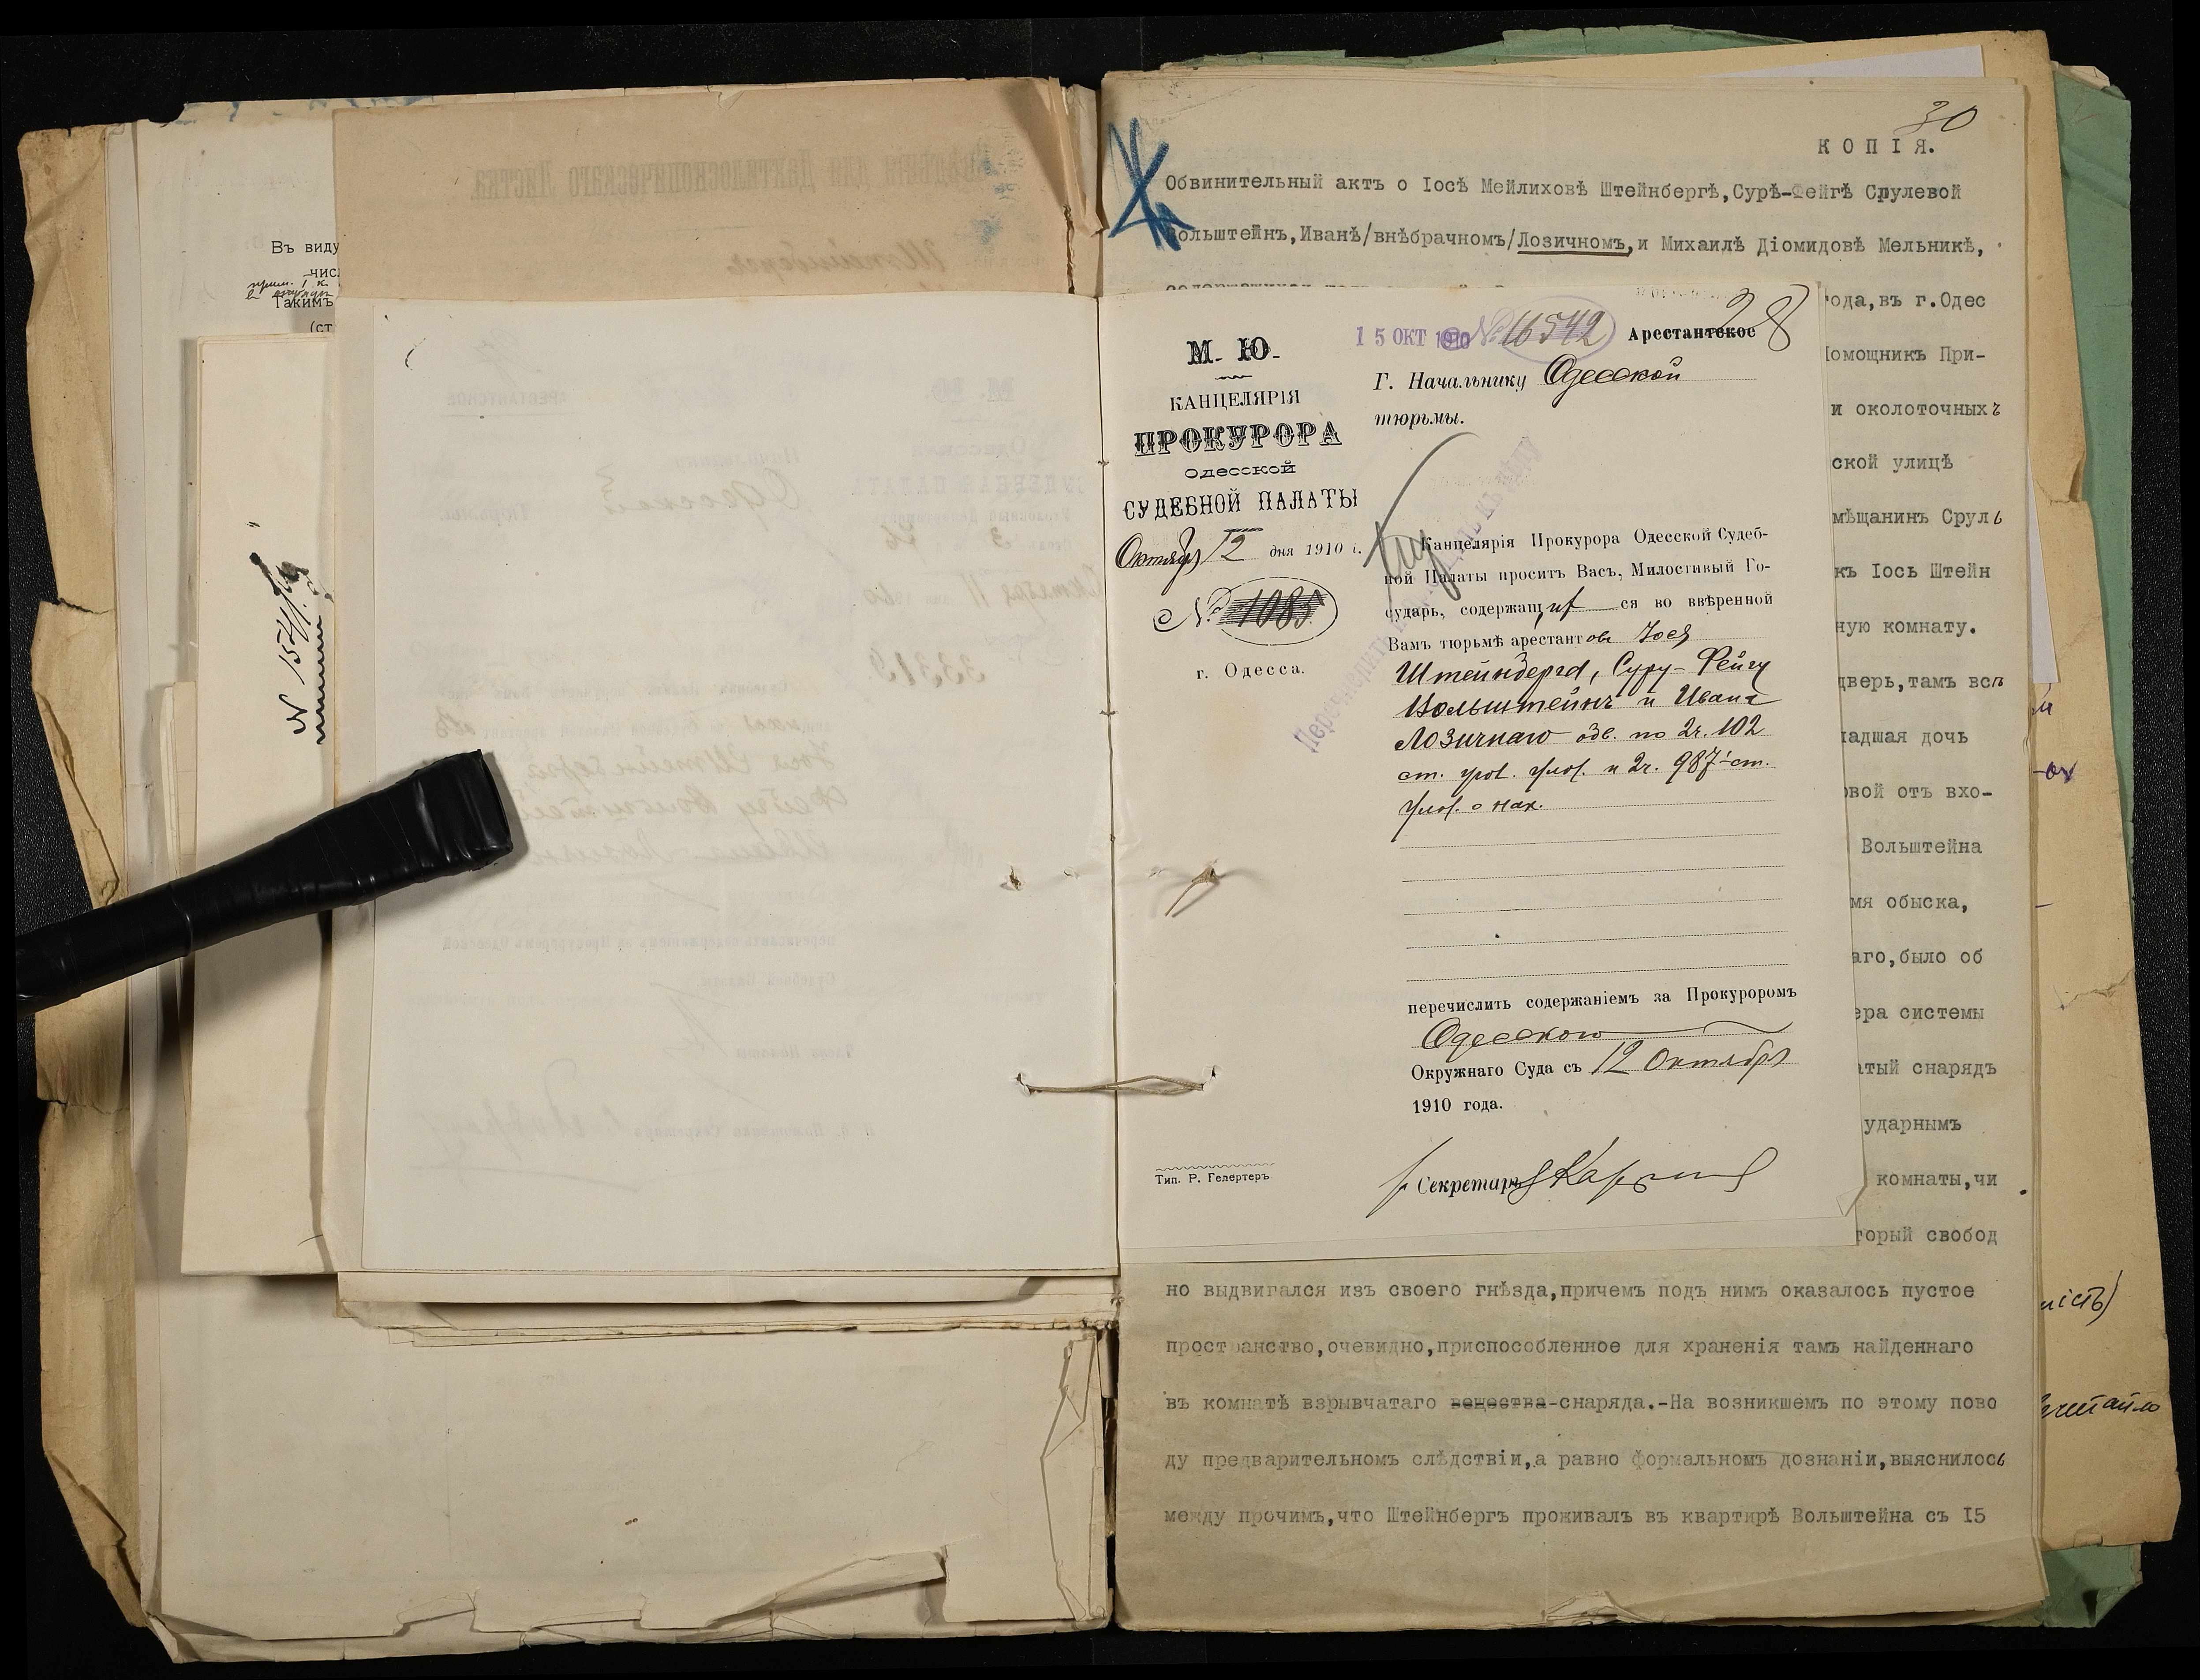 Въ виду
Такимъ
(ст
30
КОПІЯ.
Обвинительный актъ о Іосѣ Мейлиховѣ Штейнбергѣ,Сурѣ-Фейгѣ Срулевой
Вольштейнъ,Иванѣ/внѣбрачномъ/Лозичномъ,и Михаилѣ Діомидовѣ Мельникѣ,
года,въ г.Одес
Помощникъ При-
и околоточныхъ
ской улицѣ
мѣщанинъ Сруль
къ Іось Штейн
ную комнату.
дверь,тамъ всп
адшая дочь
вой отъ вхо-
Вольштейна
мя обыска,
аго,было об
ера системы
атый снарядъ
ударнымъ
комнаты,чи
торый свобод
но выдвигался изъ своего гнѣзда,причемъ подъ нимъ оказалось пустое
пространство,очевидно,приспособленное для храненія тамъ найденнаго
въ комнатѣ взрывчатаго вещества-снаряда.-На возникшемъ по этому пово
ду предварительномъ слѣдствіи,а равно формальномъ дознаніи,выяснилось
между прочимъ,что Штейнбергъ проживалъ въ квартирѣ Вольштейна съ I5
М. Ю.
КАНЦЕЛЯРІЯ
ПРОКУРОРА
ОДЕССКОЙ
СУДЕБНОЙ ПАЛАТЫ
Октября 12 дня 1910 г.
№ 1085
г. Одесса.
Тип. Р. Гелертеръ
15 ОКТ 1910 № 16542 Арестантское
28
Г. Начальнику Одесской
тюрьмы.
Канцелярія Прокурора Одесской Судеб-
ной Палаты проситъ Васъ, Милостивый Го-
сударь, содержащихся во ввѣренной
Вамъ тюрьмѣ арестантовъ Іося
Штейнберга, Суру-Фейгу
Вольштейнъ и Ивана
Лозичнаго обв. по 2ч. 102
ст. угол. улож. и 2ч. 987¹ ст.
улож. о нак.
перечислить содержаніемъ за Прокуроромъ
Одесскаго
Окружнаго Суда съ 12 Октября
1910 года.
Секретарь